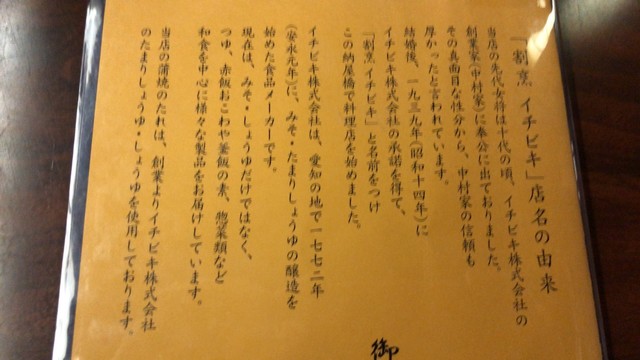 「割烹 イチビキ」店名の由来
当店の先代女将は十代の頃、イチビキ株式会社の
創業家（中村家）に奉公に出ておりました。
その真面目な性分から、中村家の信頼も
厚かったと言われています。
結婚後、一九三九年（昭和十四年）に
イチビキ株式会社の承諾を得て、
「割烹 イチビキ」と名前をつけ
この納屋橋で料理店を始めました。
イチビキ株式会社は、愛知の地で一七七二年
（安永元年）に、みそ・たまりしょうゆの醸造を
始めた食品メーカーです。
現在は、みそ・しょうゆだけではなく、
つゆ、赤飯おこわや釜飯の素、惣菜類など
和食を中心に様々な製品をお届けしています。
当店の蒲焼のたれは、創業よりイチビキ株式会社
のたまりしょうゆ・しょうゆを使用しております。
御